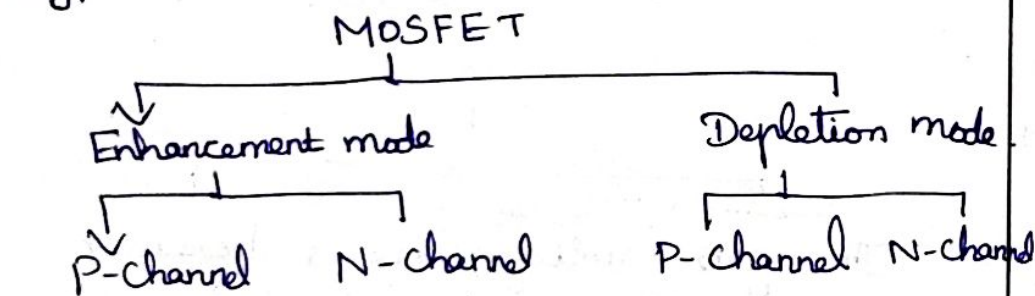 MOSFET
Enhancement mode Depletion mode
P-channel N-channel P-channel N-channel